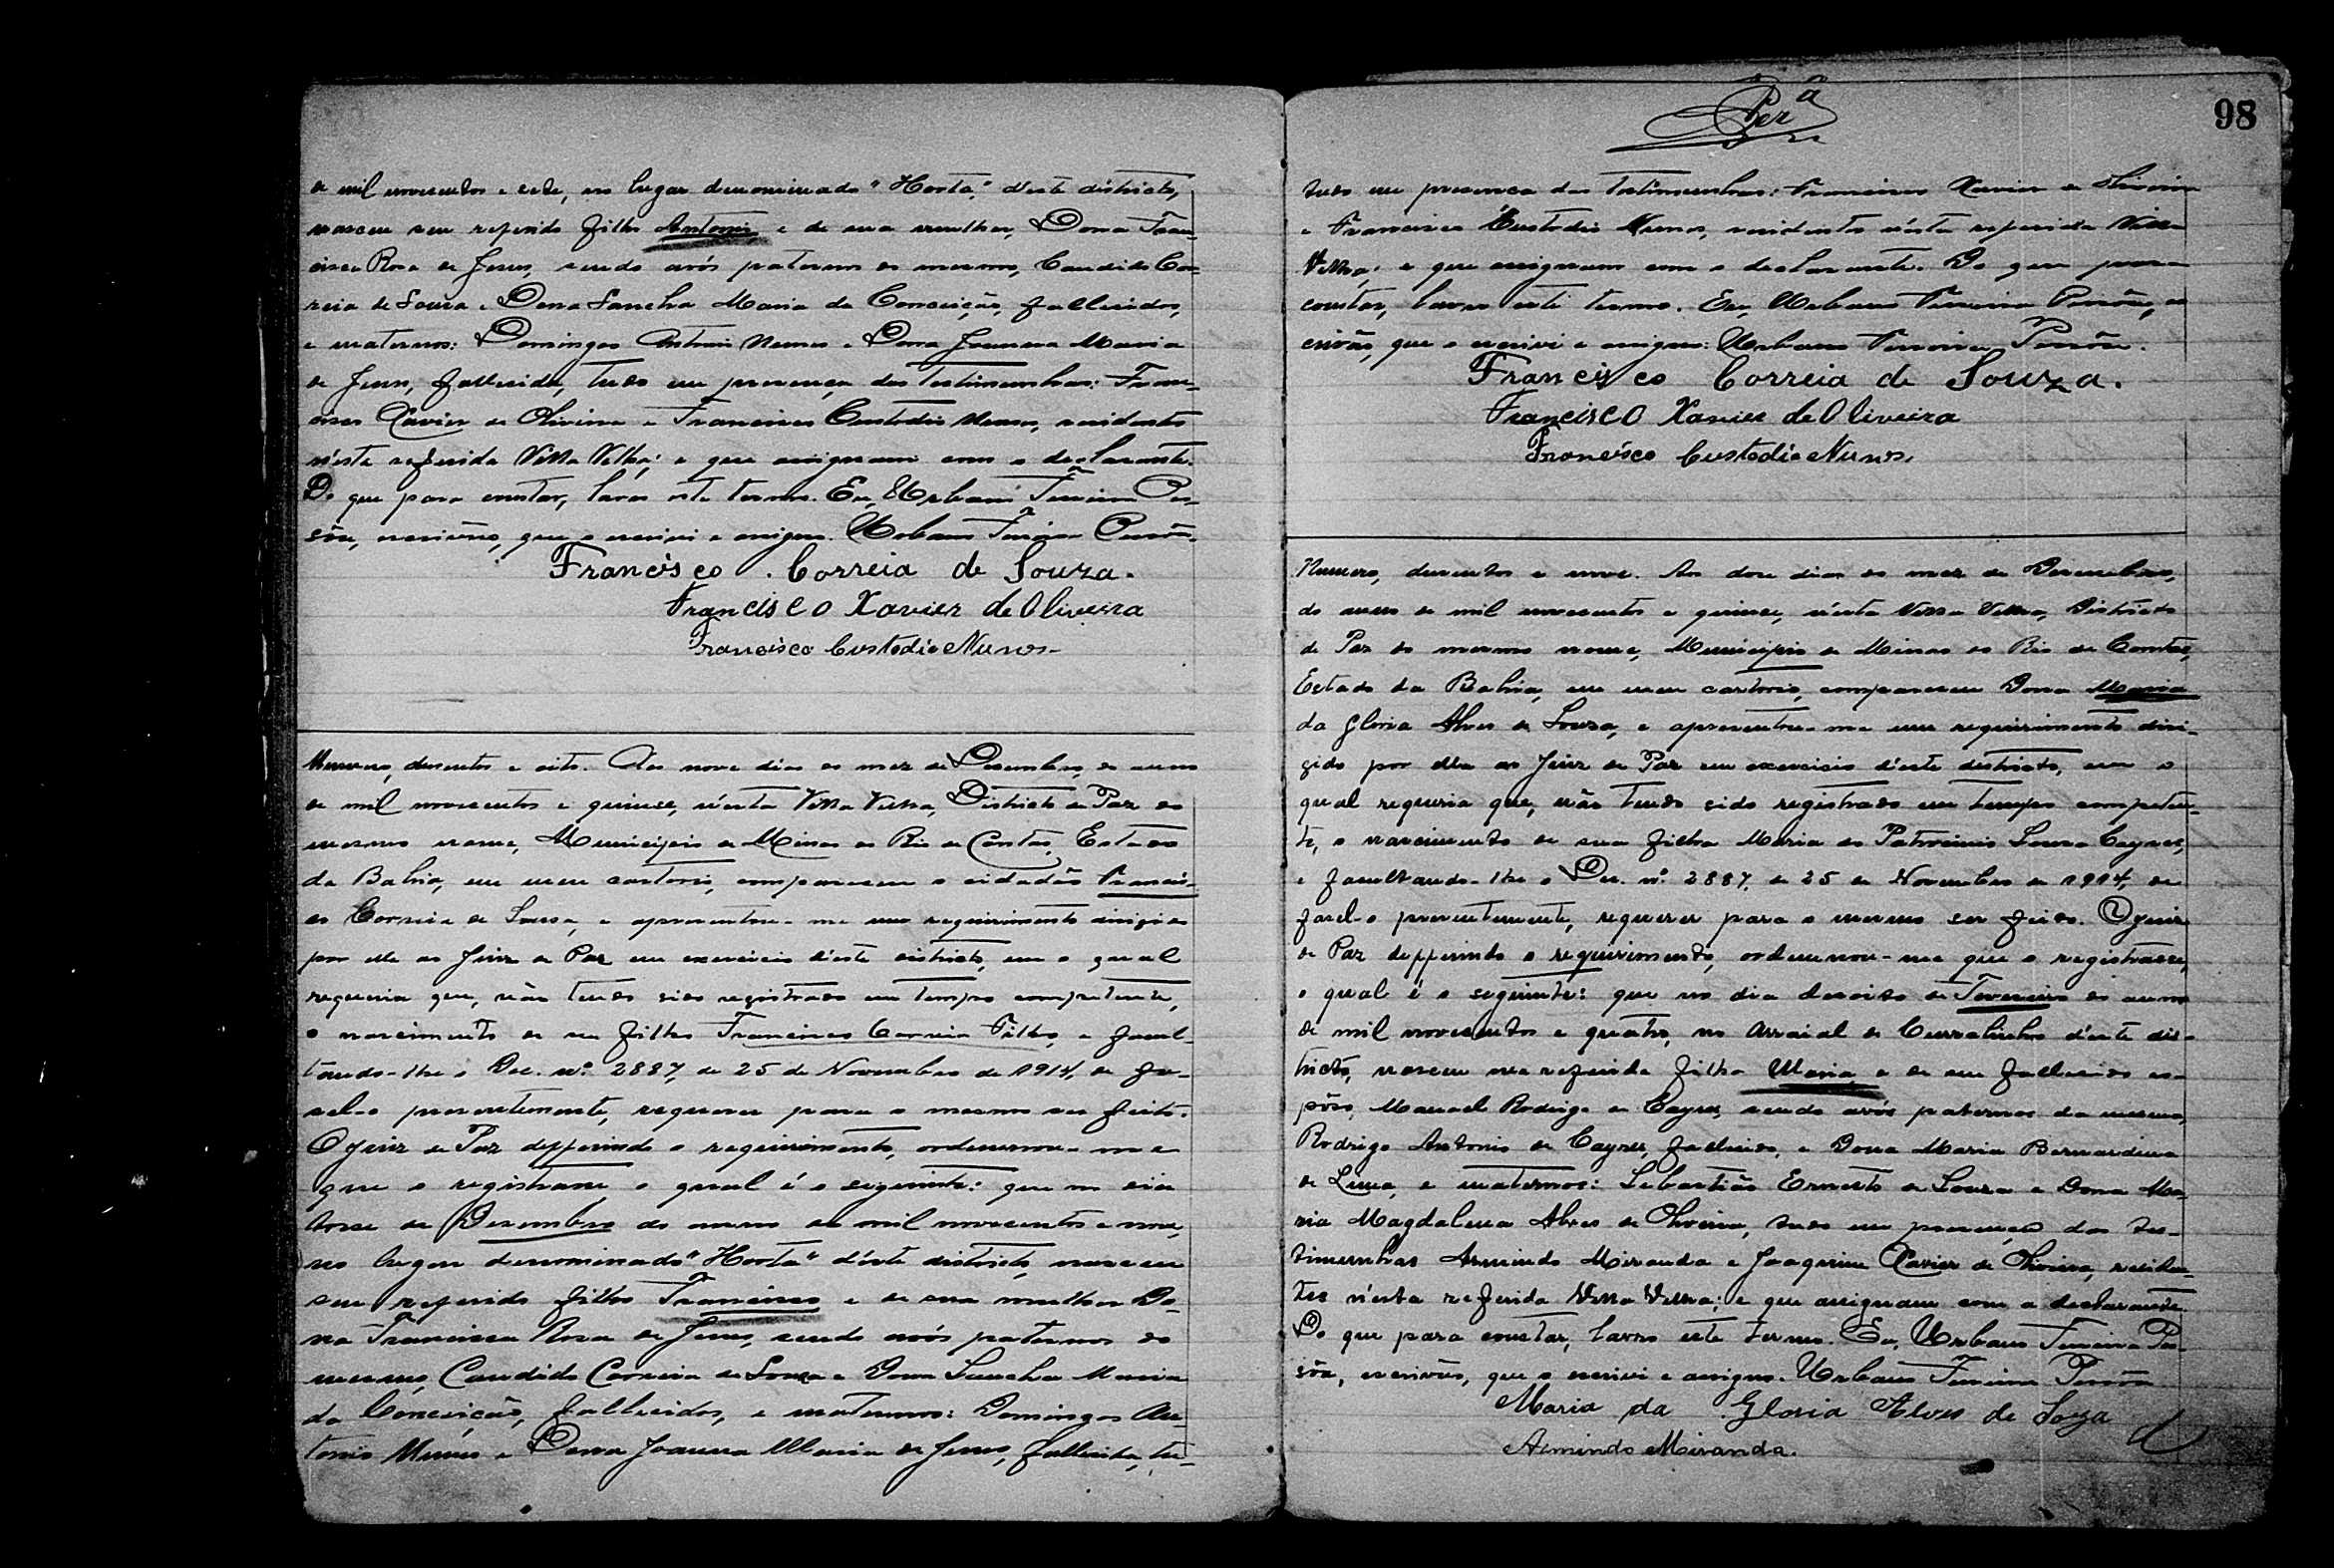 de mil novecentos e sete, no lugar denominado "Horta", d'este districto,
nasceu seu referido filho Antonio e de sua mulher, Dona Fran-
cisca Rosa de Jesus, sendo avós paternos do mesmo, Candido Cor-
reia de Souza e Dona Sancha Maria da Conceição, fallecidos,
e maternos: Domingos Antonio Nunes e Dona Joanna Maria
de Jesus, fallecida, tudo em presença das testimunhas: Fran-
cisco Xavier de Oliveira e Francisco Custodio Nunes, residentes
n'esta referida Villa Velha; e que assignam com o declarante.
Do que para constar, lavro este termo. Eu, Urbano Ferreira
escrivão, que o escrivi e assigno. Urbano Ferreira
Francisco Correia de Souza.
Francisco Xavier de Oliveira
Francisco Custodio Nunes
Numero, dusentos e oito. Aos nove dias do mez de Dezembro, do anno
de mil novecentos e quinse, n'esta Villa Velha, Districto de Paz do
mesmo nome, Municipio de Minas do Rio de Contas, Estado
da Bahia, em meu cartorio, compareceu o cidadão Francis-
co Correia de Souza, e apresentou-me um requirimento dirigido
por elle ao Juiz de Paz em exercicio d'este districto, em o qual
requeria que, não tendo sido registrado em tempo competente,
o nascimento de seu filho Francisco Correia Filho, e facul-
tando-lhe o Dec. nº 2887, de 25 de Novembro de 1914, de fa-
sel-o presentemente, requerer para o mesmo ser feito.
O Juiz de Paz defferindo o requirimento, ordennou-me
que o registrasse, o qual é o seguinte: que no dia
dose de Dezembro do anno de mil novecentos e nove,
no lugar denominado "Horta" d'este districto, nasceu
seu referido filho Francisco e de sua mulher Do-
na Francisca Rosa de Jesus, sendo avós paternos do
mesmo, Candido Correia de Souza e Dona Sancha Maria
da Conceição, fallecidos, e maternos: Domingos An-
tonio Nunes e Dona Joanna Maria de Jesus, fallecida, tu-
98
tudo em presença das testimunhas: Francisco Xavier de Oliveira
e Francisco Custodio Nunes, residentes n'esta referida Villa
Velha; e que assignam com o declarante. Do que para
constar, lavro este termo. Eu, Urbano Ferreira es-
crivão, que o escrivi e assigno: Urbano Ferreira
Francisco Correia de Souza.
Francisco Xavier de Oliveira
Francisco Custodio Nunes.
Numero, dusentos e nove. Aos dose dias do mez de Dezembro,
do anno de mil novecentos e quinse, n'esta Villa Velha, Districto
de Paz do mesmo nome, Municipio de Minas do Rio de Contas,
Estado da Bahia, em meu cartorio, compareceu Dona Maria
da Gloria Alves de Souza, e apresentou-me um requirimento diri-
gido por ella ao Juiz de Paz em exercicio d'este districto, em o
qual requeria que, não tendo sido registrado em tempo competen-
te, o nascimento de sua filha Maria do Patrocinio Souza Cayres,
e facultando-lhe o Dec. nº 2887, de 25 de Novembro de 1914, de
fasel-o presentemente, requerer para o mesmo ser feito. O Juiz
de Paz defferindo o requirimento, ordennou-me que o registrasse,
o qual é o seguinte: que no dia desoito de Fevereiro do anno
de mil novecentos e quatro, no Arraial de Curralinho d'este dis-
tricto, nasceu sua referida filha Maria e de seu fallecido es-
pôso, Manoel Rodrigo de Cayres, sendo avós paternos da mesma,
Rodrigo Antonio de Cayres, fallecido, e Dona Maria Bernardina
de Lima, e maternos: Sebastião Ernesto de Souza e Dona Ma-
ria Magdalena Alves de Oliveira, tudo em presença das tes-
timunhas Armindo Miranda e Joaquim Xavier de Oliveira, residen-
tes n'esta referida Villa Velha; e que assignam com a declarante.
Do que para constar, lavro este termo. Eu, Urbano Ferreira
escrivão, que o escrivi e assigno. Urbano Ferreira
Maria da Gloria Alves de Souza
Armindo Miranda.